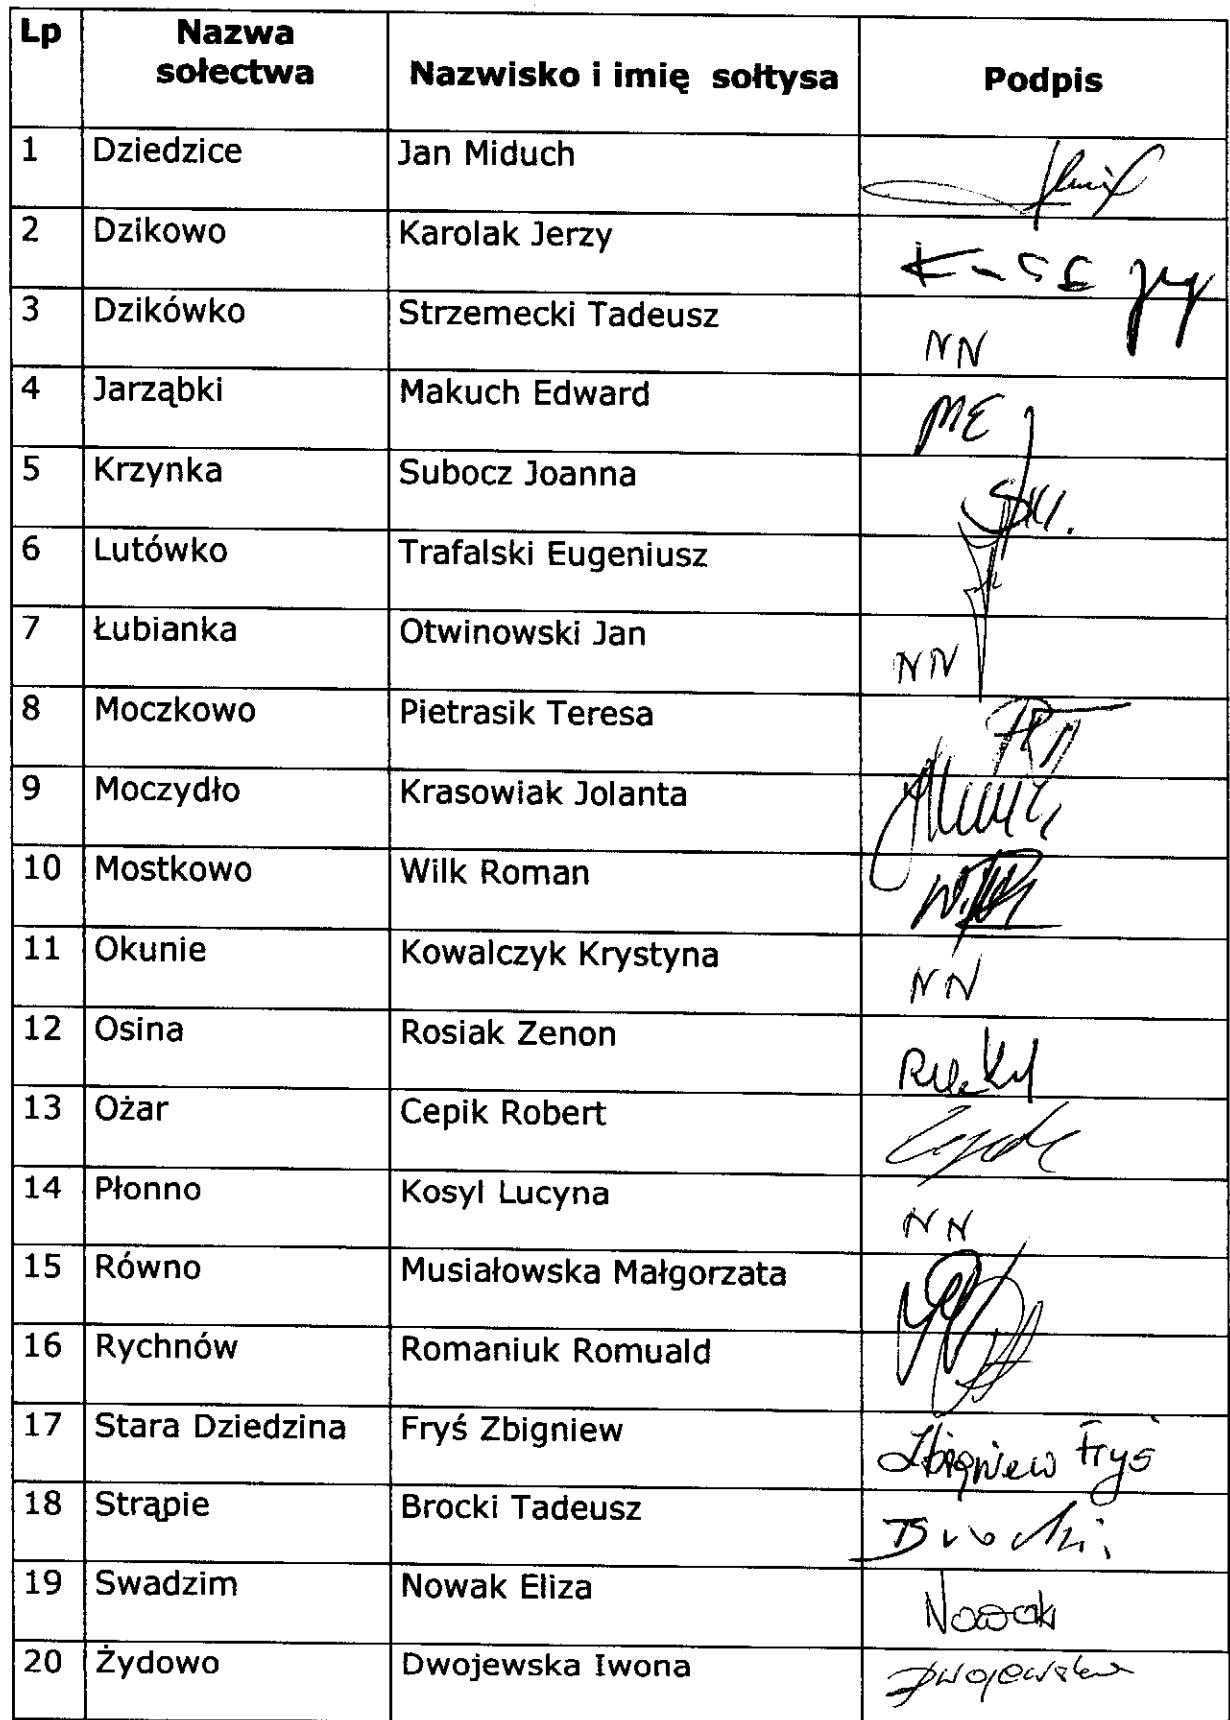 Lp Nazwa sołectwa Nazwisko i imię sołtysa Podpis
1 Dziedzice Jan Miduch
2 Dzikowo Karolak Jerzy
3 Dzikówko Strzemecki Tadeusz NN
4 Jarząbki Makuch Edward ME
5 Krzynka Subocz Joanna
6 Lutówko Trafalski Eugeniusz
7 Łubianka Otwinowski Jan NN
8 Moczkowo Pietrasik Teresa
9 Moczydło Krasowiak Jolanta
10 Mostkowo Wilk Roman
11 Okunie Kowalczyk Krystyna NN
12 Osina Rosiak Zenon
13 Ożar Cepik Robert
14 Płonno Kosyl Lucyna NN
15 Równo Musiałowska Małgorzata
16 Rychnów Romaniuk Romuald
17 Stara Dziedzina Fryś Zbigniew Zbigniew Fryś
18 Strąpie Brocki Tadeusz Brocki
19 Swadzim Nowak Eliza Nowak
20 Żydowo Dwojewska Iwona Dwojewska